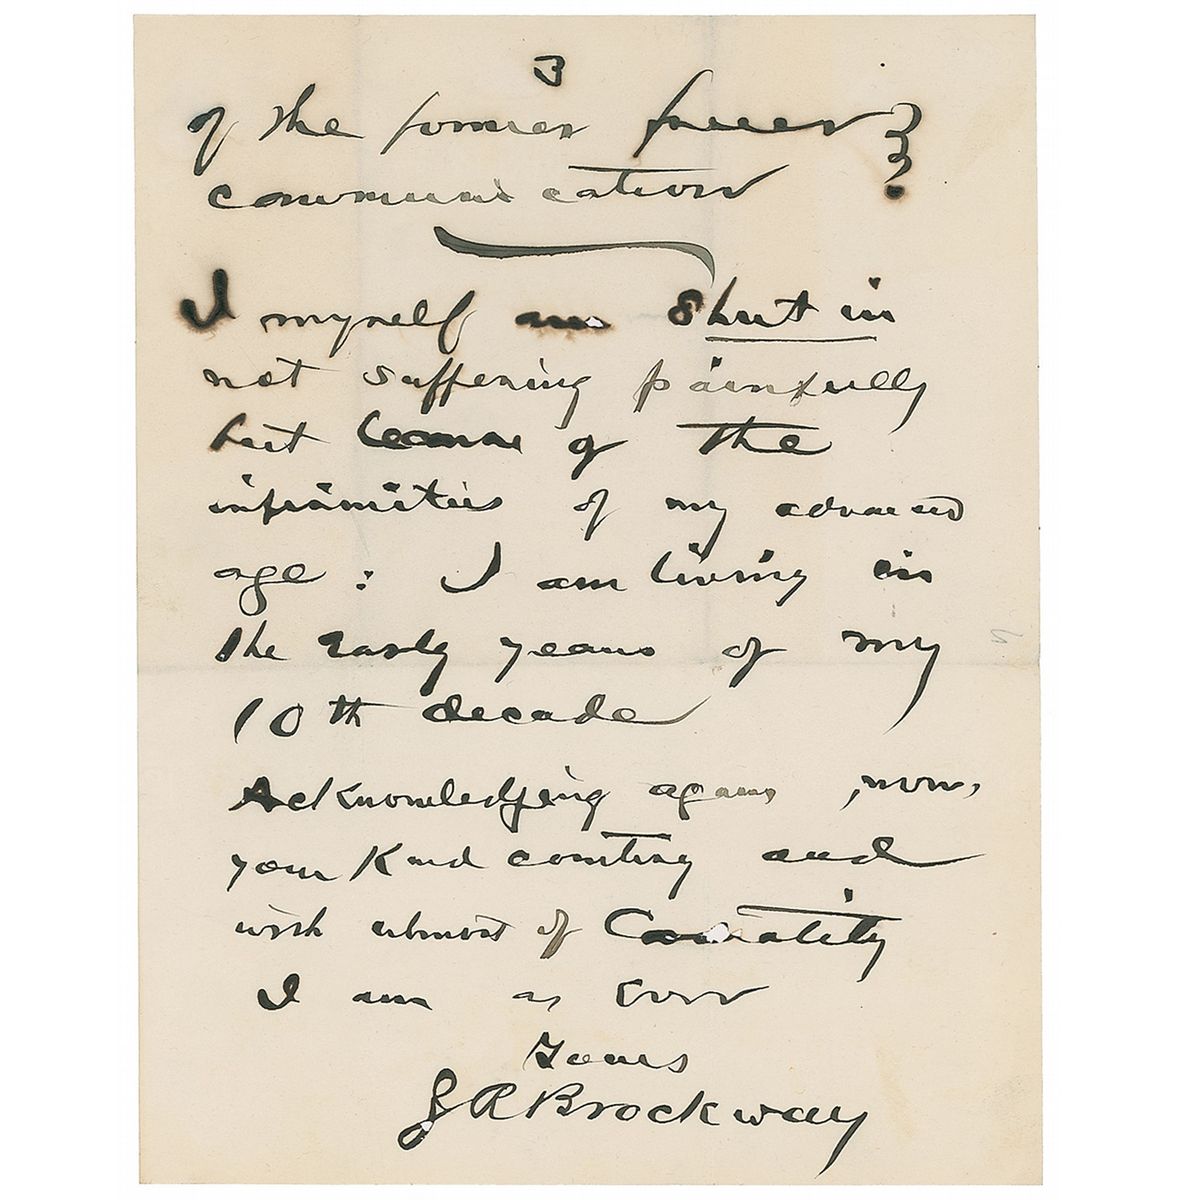 3
of the former freer
communication ?
I myself am Shut in
not suffering painfully
but because of the
infirmities of my advanced
age: I am living in
the early years of my
10th decade
Acknowledging again, now,
your kind courtesy and
with utmost of Cordiality
I am as Ever
Yours
Z R Brockway